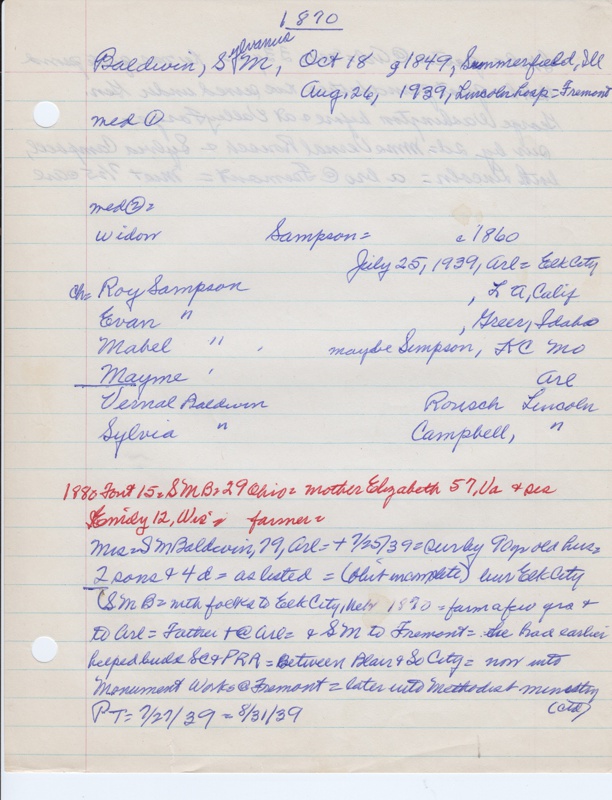 1870
Baldwin, Sylvanus M, Oct 18 1849, Summerfield, Ill
Aug. 26, 1939, Lincoln hosp = Fremont
med ①
med ② =
widow Sampson = c 1860
July 25, 1939, Arl = Elk City
ch = Roy Sampson , L A, Calif
Evan " , Greer, Idaho
Mabel " , maybe Simpson, KC Mo
Mayme ' Arl
Vernal Baldwin Rousch Lincoln
Sylvia " Campbell, "
1880 Font 15 = S M B = 29 Ohio = mother Elizabeth 57, Va + sis
Emidy 12, Wis ; farmer =
Mrs = S M Baldwin, 79, Arl = + 7/25/39 = sur by 90 yr old hus =
2 sons & 4 d = as listed = (obit incomplete) bur Elk City
(S M B = with folks to Elk City, Neb 1870 = farm a few yrs +
to Arl = Father + @ Arl = & S M to Fremont = he had earlier
helped build SC & PRR = Between Blair & So City = now into
Monument Work @ Fremont = later into Methodist ministry
P T = 7/27/39 = 8/31/39 (ctd)